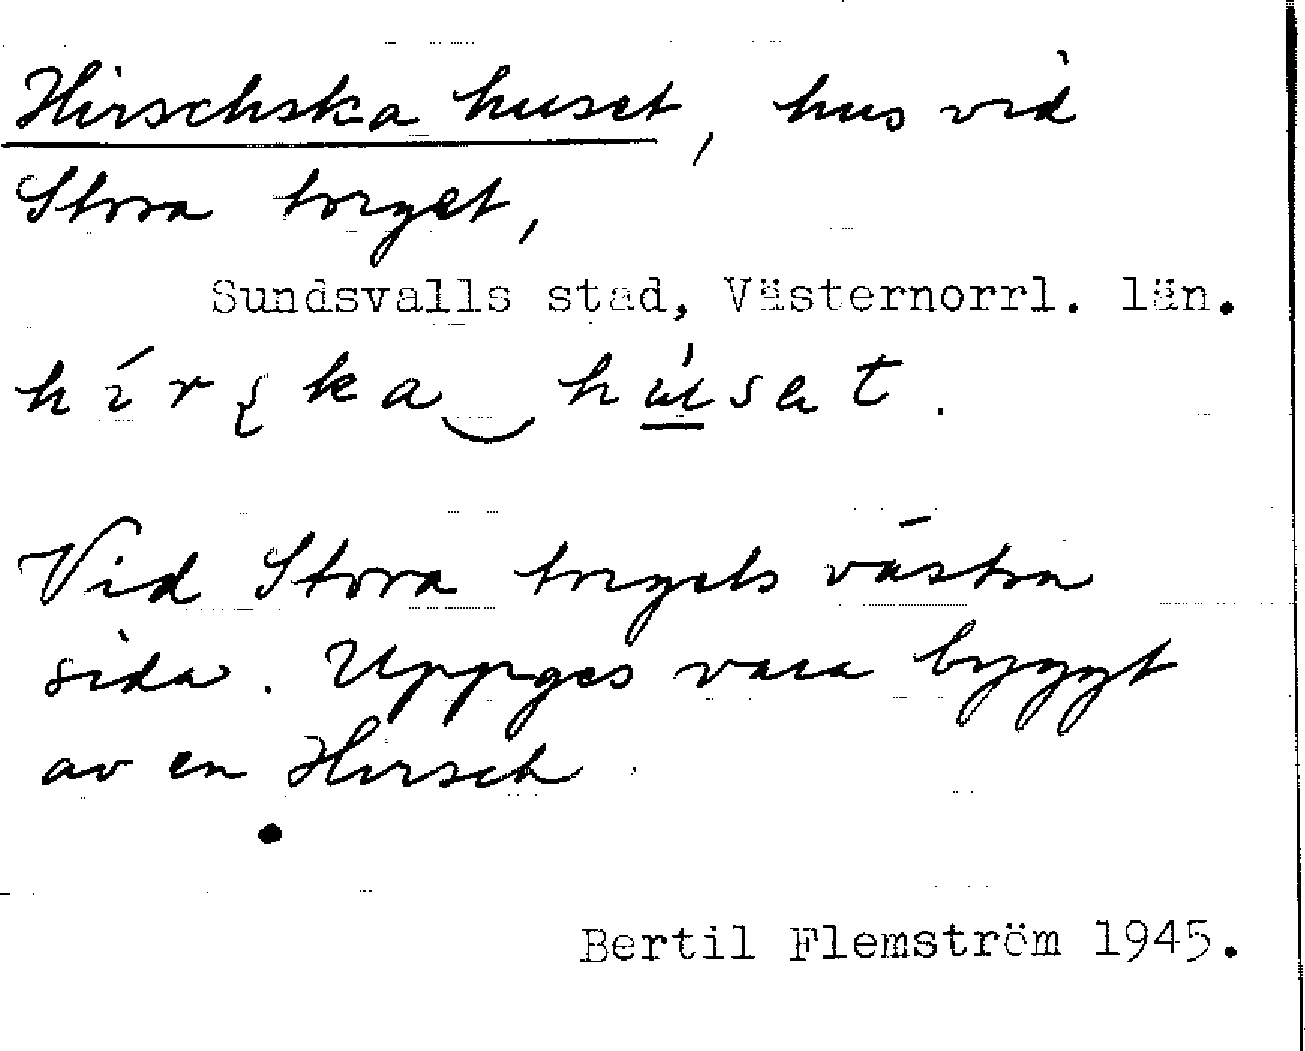 Hirschska huset, hus vid
Stora torget,
Sundsvalls stad, Västernorrl. län.
hírʂka‿hú̲sat.
Vid Stora torgets västra
sida. Uppges vara byggt
av en Hirsch.
Bertil Flemström 1945.